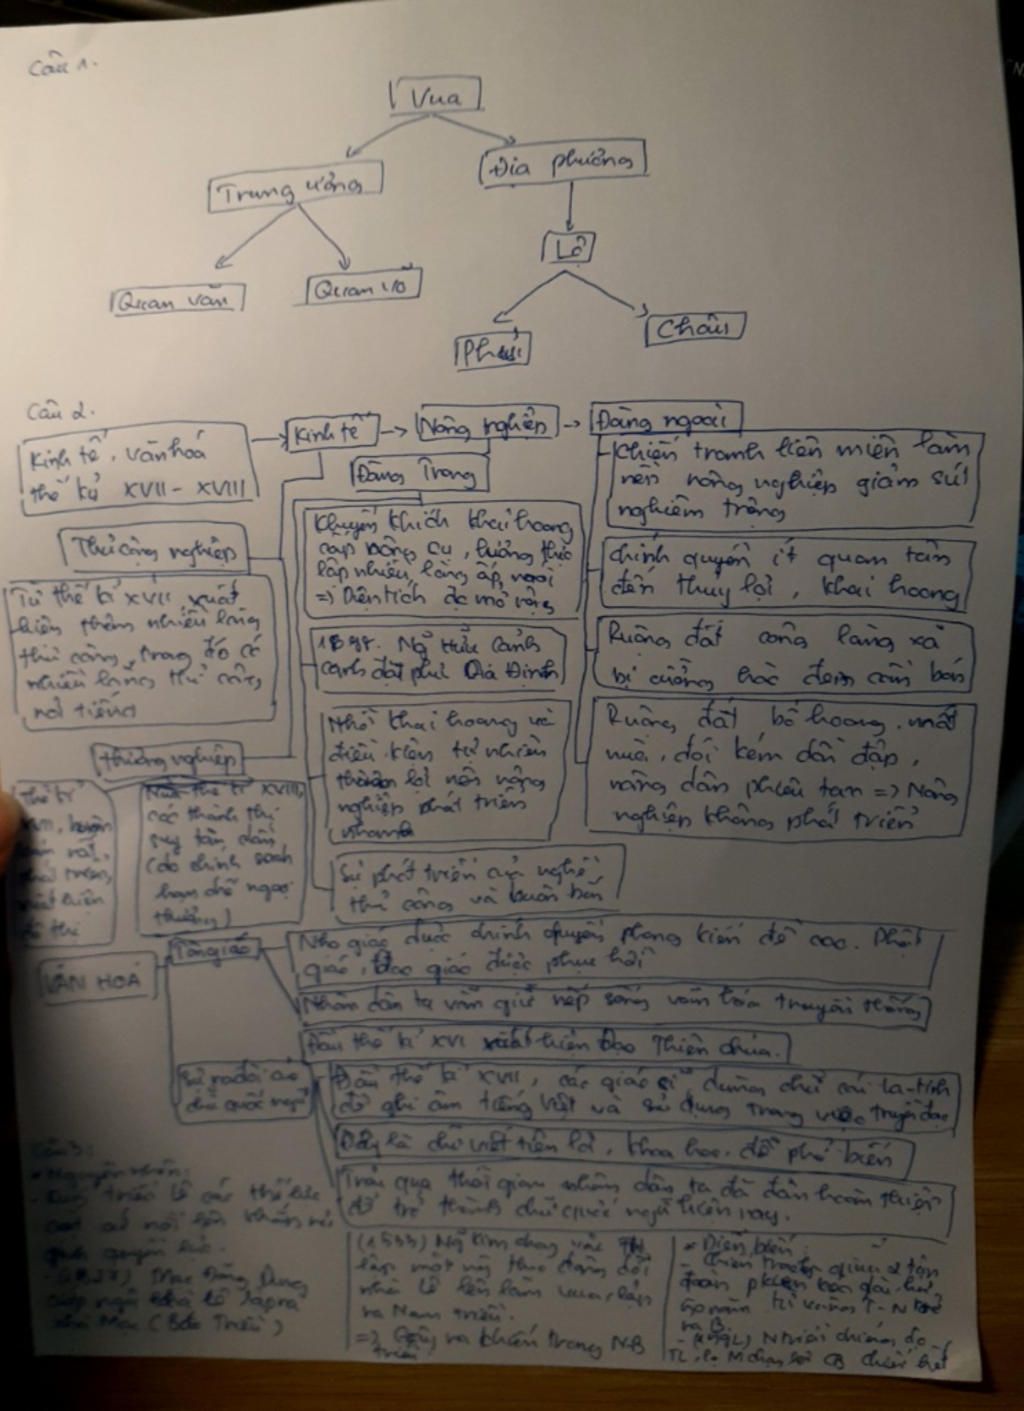 Câu 1.
Vua
Trung ương
Địa phương
Quan văn
Quan võ
Lộ
Phủ
Châu
Câu 2.
Kinh tế, văn hoá
thế kỷ XVII - XVIII
Kinh tế
Nông nghiệp
Đàng ngoài
Chiến tranh liên miên làm
nền nông nghiệp giảm sút
nghiêm trọng
Chính quyền ít quan tâm
đến thuỷ lợi, khai hoang
Ruộng đất công làng xã
bị cường hào đem cầm bán
Ruộng đất bỏ hoang, mất
mùa, đói kém dồn dập,
nông dân phiêu tán => Nông
nghiệp không phát triển
Đàng Trong
Khuyến khích khai hoang
cấp nông cụ, lương thực
lập nhiều làng ấp mới
=> Diện tích đc mở rộng
Hữu Cảnh
đặt phủ Gia Định
Nhờ khai hoang và
điều kiện tự nhiên
thuận lợi nên nông
nghiệp phát triển
nhanh
Sự phát triển của nghề
thủ công và buôn bán
Thủ công nghiệp
Từ thế kỉ XVII xuất
hiện thêm nhiều làng
thủ công, trong đó có
nhiều làng thủ công
nổi tiếng
thương nghiệp
thế kỉ XVIII,
các thành thị
suy tàn dần
(do chính sách
hạn chế ngoại
thương)
Thế kỉ
VĂN HOÁ
Tôn giáo
Nho giáo được chính quyền phong kiến đề cao. Phật
giáo, Đạo giáo được phục hồi
Nhân dân ta vẫn giữ nếp sống văn hóa truyền thống
Đầu thế kỉ XVI xuất hiện Đạo Thiên chúa.
Sự ra đời của
chữ quốc ngữ
Đầu thế kỉ XVII, các giáo sĩ dùng chữ cái La-tinh
để ghi âm tiếng Việt và sử dụng trong việc truyền đạo
Đây là chữ viết tiện lợi, khoa học, dễ phổ biến
Trải qua thời gian nhân dân ta đã dần hoàn thiện
để trở thành chữ quốc ngữ hiện nay.
Câu 3:
* Nguyên nhân:
triều Lê các thế lực
quyền lực.
(1527) Mạc Đăng Dung
cướp ngôi nhà Lê lập ra
nhà Mạc (Bắc Triều)
(1533) Ng Kim chạy vào TH
lập một ng
nhà Lê lên làm vua, lập
ra Nam triều.
* Diễn biến:
- Chiến tranh giữa 2 tập
đoàn p kiến kéo dài hơn
50 năm
ra B.